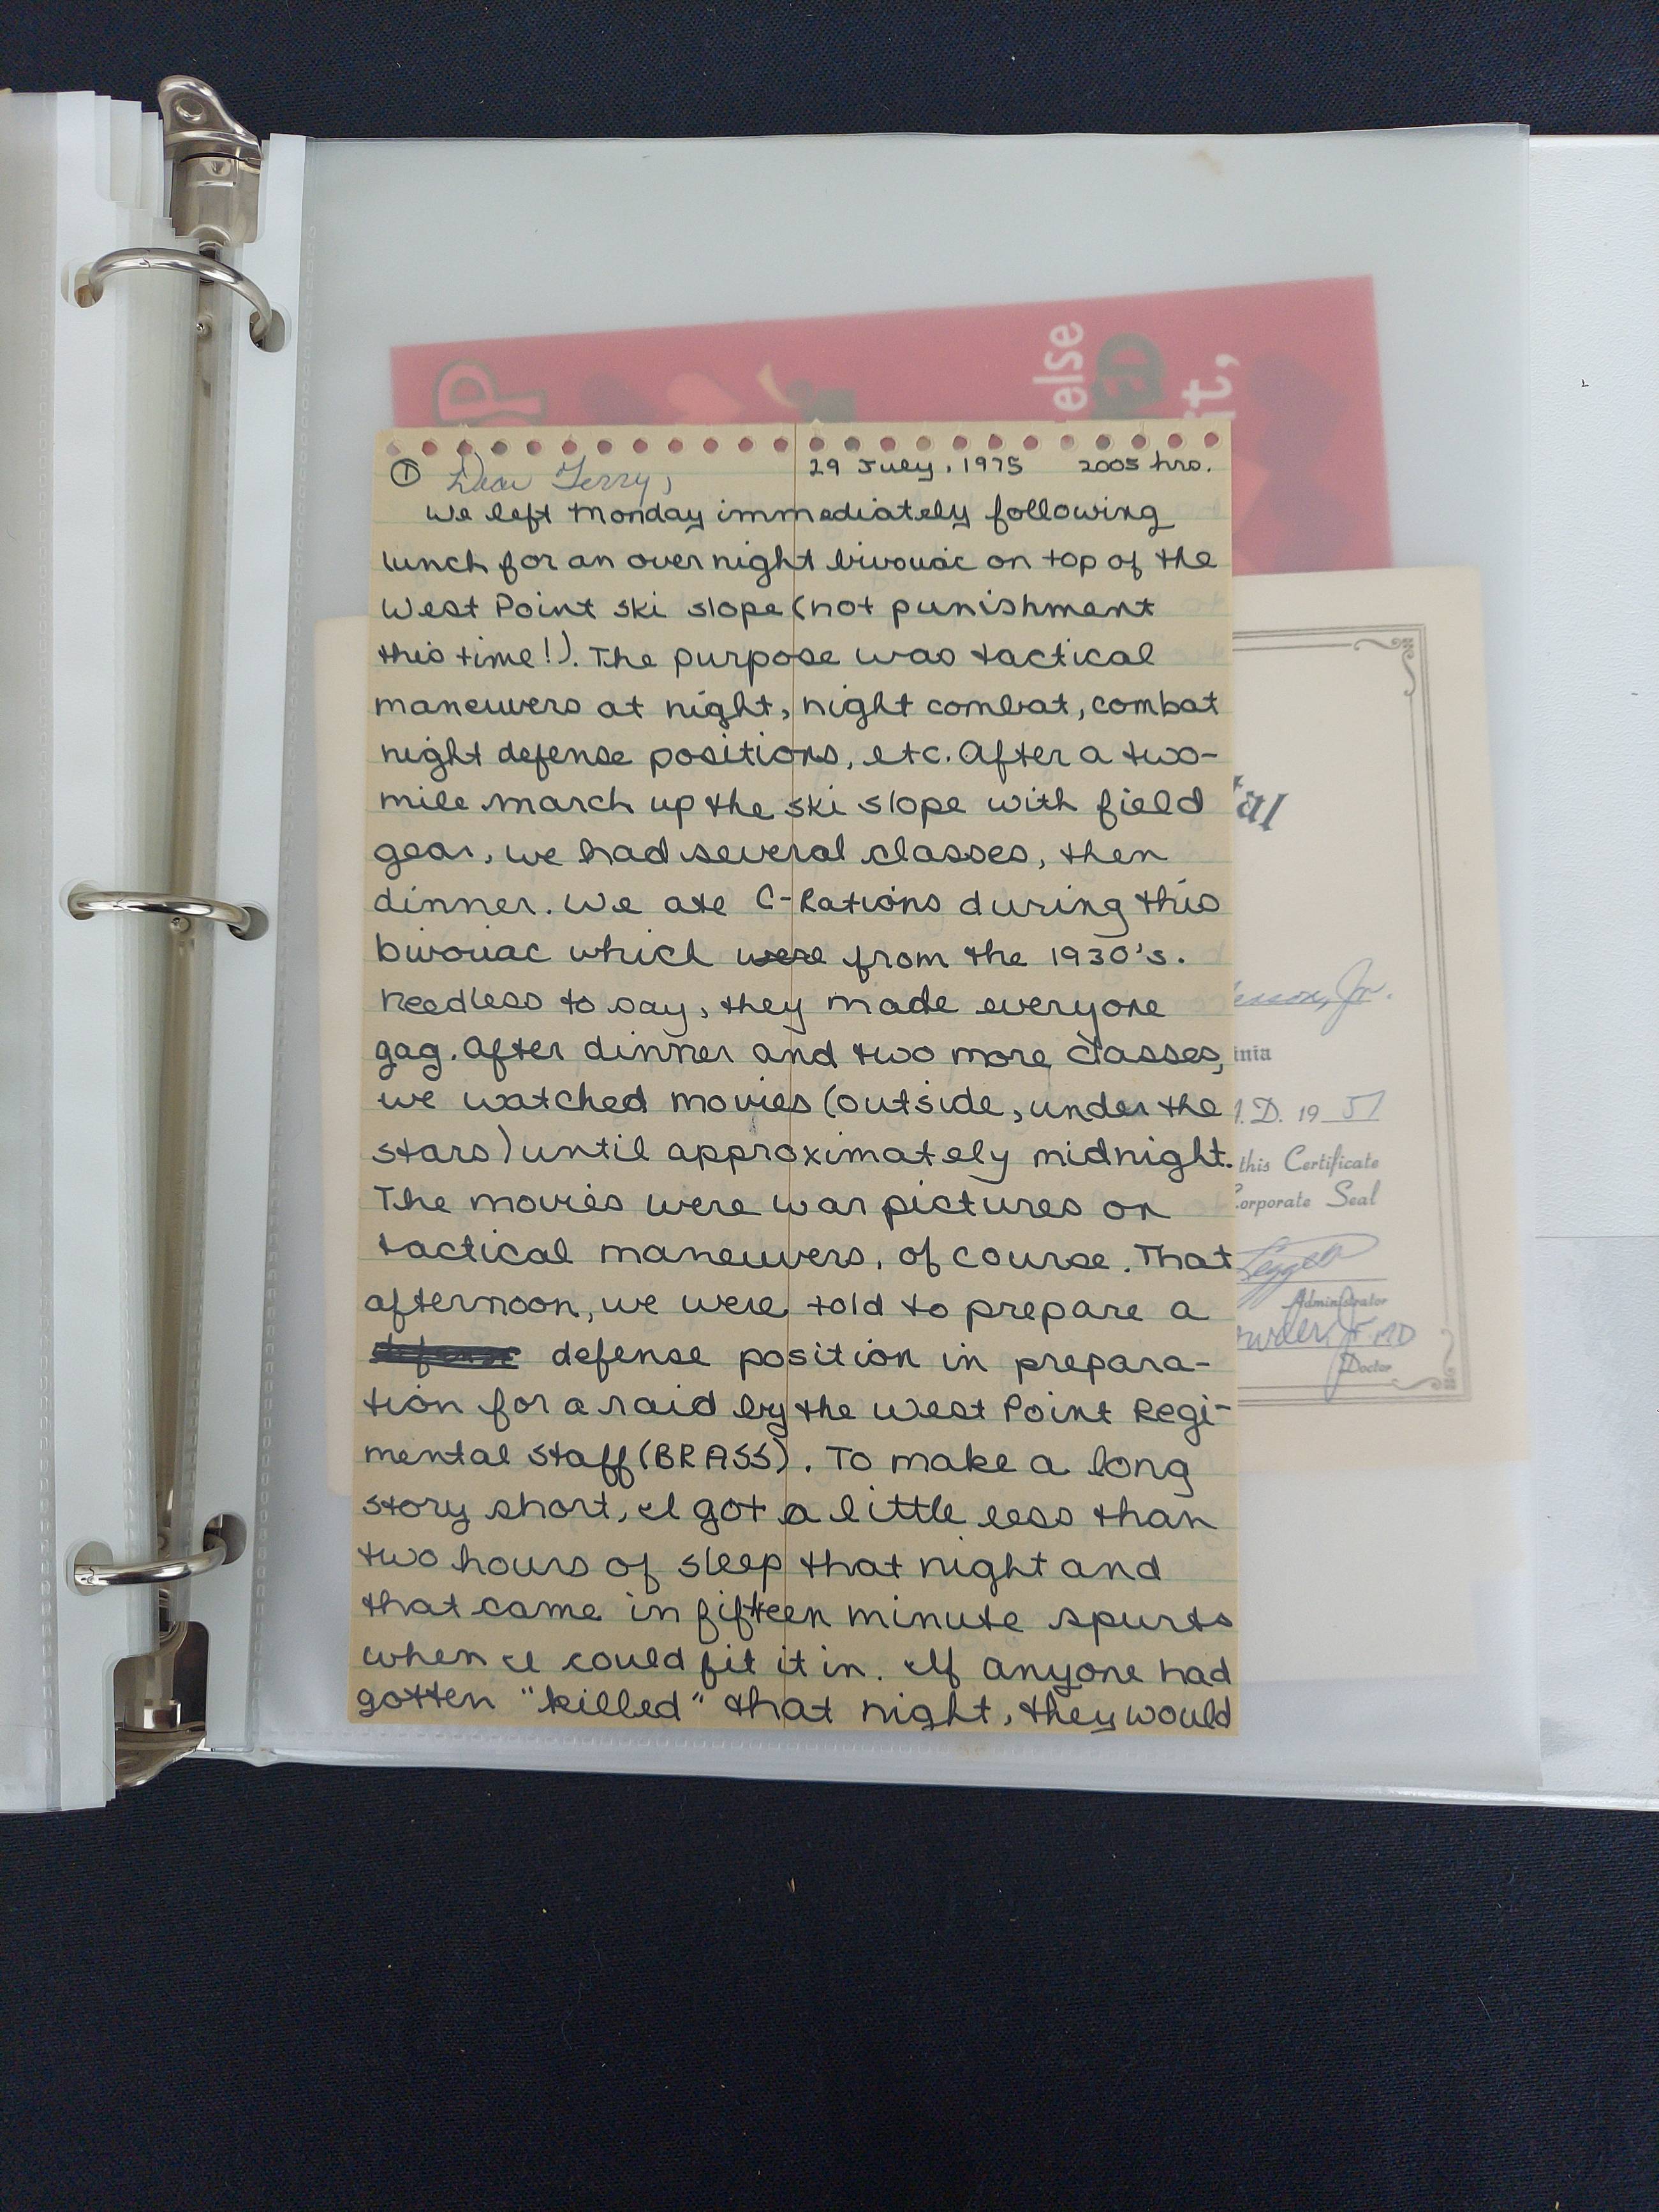 P
else
it,
① Dear Terry, 29 July, 1975 2005 hrs.
We left Monday immediately following
lunch for an overnight bivouac on top of the
West Point ski slope (not punishment
this time!). The purpose was tactical
maneuvers at night, night combat, combat
night defense positions, etc. After a two-
mile march up the ski slope with field
gear, we had several classes, then
dinner. We ate C-Rations during this
bivouac which were from the 1930's.
Needless to say, they made everyone
gag. After dinner and two more classes,
we watched movies (outside, under the
stars) until approximately midnight.
The movies were war pictures on
tactical maneuvers, of course. That
afternoon, we were told to prepare a
defense defense position in prepara-
tion for a raid by the West Point Regi-
mental Staff (BRASS). To make a long
story short, I got a little less than
two hours of sleep that night and
that came in fifteen minute spurts
when I could fit it in. If anyone had
gotten "killed" that night, they would
tal
Jr.
inia
D. 19 51
this Certificate
Corporate Seal
Leggett
Administrator
Jr. MD
Doctor